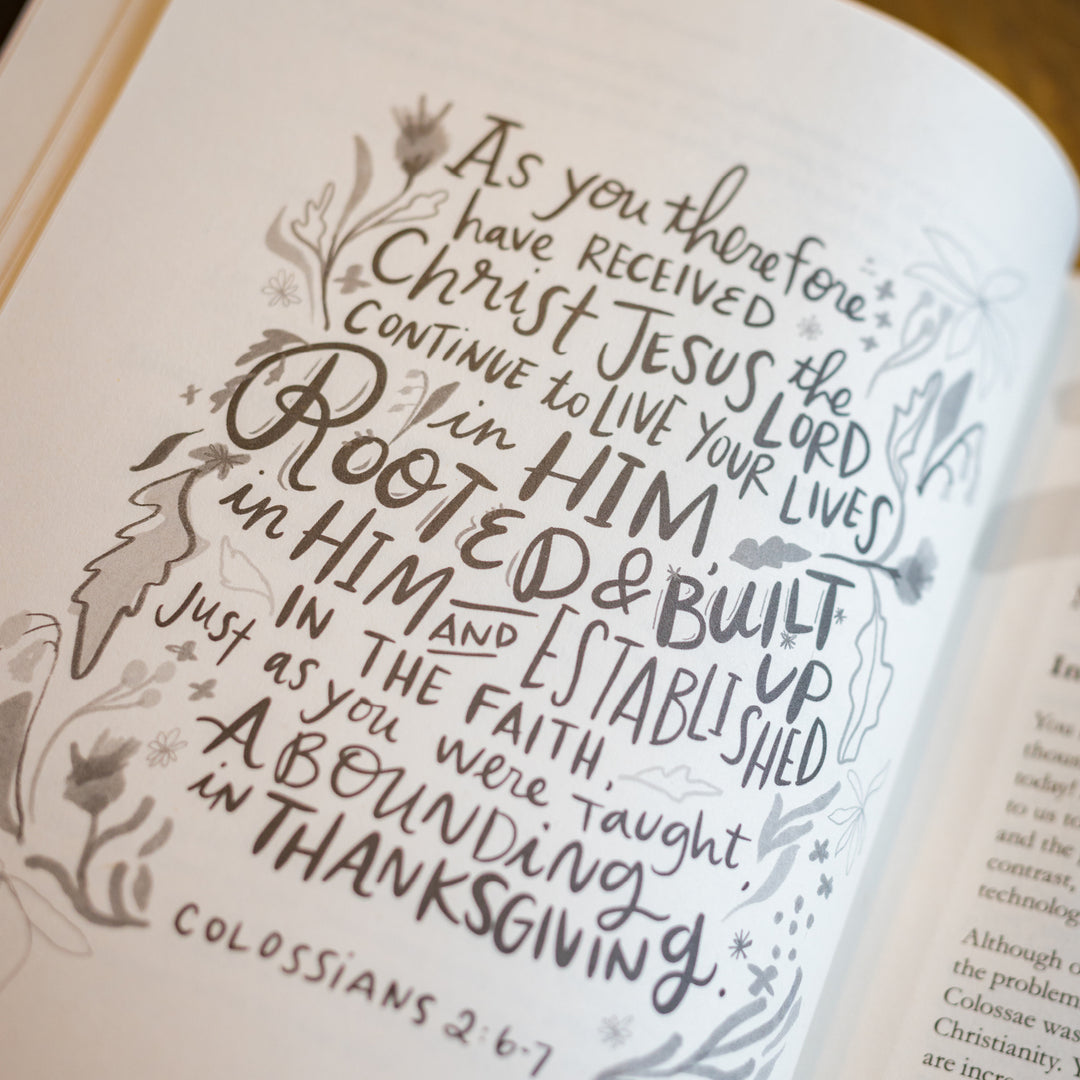 As you therefore
have RECEIVED
Christ JESUS the LORD
CONTINUE to LIVE YOUR LIVES
in HIM,
ROOTED & BUILT UP
in HIM AND ESTABLISHED
IN THE FAITH,
Just as you were Taught,
ABOUNDing
in THANKSGIVINg.
COLOSSiANS 2:6-7
In
You
thousa
today!
to us to
and the
contrast,
technolog
Although o
the problem
Colossae was
Christianity. Y
are incre